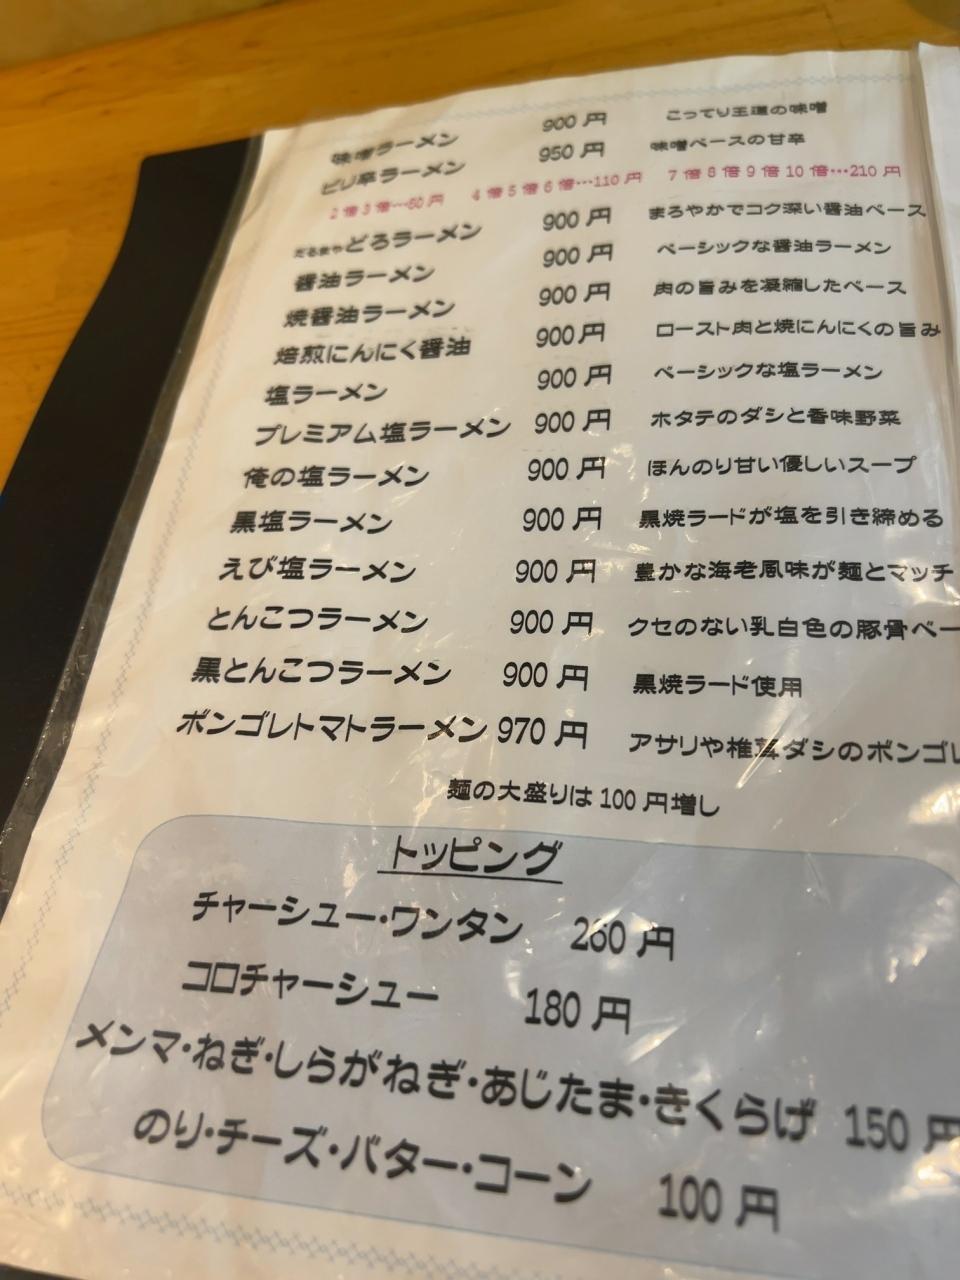 味噌ラーメン 900 円 こってり王道の味噌
ピリ辛ラーメン 950 円 味噌ベースの甘辛
2 倍 3 倍…60 円 4 倍 5 倍 6 倍…110 円 7 倍 8 倍 9 倍 10 倍…210 円
だるまや どろラーメン 900 円 まろやかでコク深い醤油ベース
醤油ラーメン 900 円 ベーシックな醤油ラーメン
焼醤油ラーメン 900 円 肉の旨みを凝縮したベース
焙煎にんにく醤油 900 円 ロースト肉と焼にんにくの旨み
塩ラーメン 900 円 ベーシックな塩ラーメン
プレミアム塩ラーメン 900 円 ホタテのダシと香味野菜
俺の塩ラーメン 900 円 ほんのり甘い優しいスープ
黒塩ラーメン 900 円 黒焼ラードが塩を引き締める
えび塩ラーメン 900 円 豊かな海老風味が麺とマッチ
とんこつラーメン 900 円 クセのない乳白色の豚骨ベー
黒とんこつラーメン 900 円 黒焼ラード使用
ボンゴレトマトラーメン 970 円 アサリや椎茸ダシのボンゴレ
麺の大盛りは 100 円増し
トッピング
チャーシュー・ワンタン 260 円
コロチャーシュー 180 円
メンマ・ねぎ・しらがねぎ・あじたま・きくらげ 150 円
のり・チーズ・バター・コーン 100 円